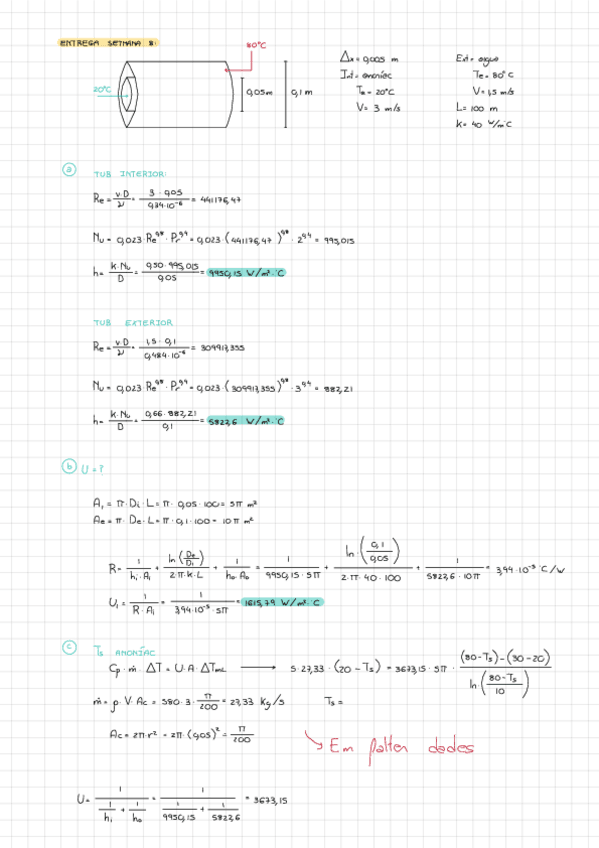 ENTREGA SETMANA 8:
80°C
20°C
0,05m
0,1 m
Δx = 0,005 m
Int = amoníac
Te = 20°C
V = 3 m/s
Ext = aigua
Te = 80°C
V = 1,5 m/s
L = 100 m
k = 40 W/m·C
a) TUB INTERIOR:
Re = v·D/ν = 3 · 0,05/0,34·10⁻⁶ = 441176,47
Nu = 0,023 · Re^0,8 · Pr^0,4 = 0,023 · (441176,47)^0,8 · 2^0,4 = 995,015
h = k·Nu/D = 0,50·995,015/0,05 = 9950,15 W/m²·C
TUB EXTERIOR
Re = v·D/ν = 1,5 · 0,1/0,484·10⁻⁶ = 309917,355
Nu = 0,023 · Re^0,8 · Pr^0,4 = 0,023 · (309917,355)^0,8 · 3^0,4 = 882,21
h = k·Nu/D = 0,66·882,21/0,1 = 5822,6 W/m²·C
b) U = ?
Ai = π · Di · L = π · 0,05 · 100 = 5π m²
Ae = π · De · L = π · 0,1 · 100 = 10π m²
R = 1/hi·Ai + ln(De/Di)/2·π·k·L + 1/ho·Ao = 1/9950,15·5π + ln·(0,1/0,05)/2·π·40·100 + 1/5822,6·10π = 3,94·10⁻⁵ °C/W
Ui = 1/R·Ai = 1/3,94·10⁻⁵·5π = 1615,79 W/m²·C
c) Ts AMONÍAC
Cp · ṁ · ΔT = U·A·ΔTmL → 5·27,33·(20 - Ts) = 3673,15·5π · (80-Ts)-(30-20)/ln·(80-Ts/10)
ṁ = ρ·V·Ac = 580·3·π/200 = 27,33 Kg/s
Ts =
Ac = 2π·r² = 2π·(0,05)² = π/200
Em falten dades
U = 1/(1/hi + 1/ho) = 1/(1/9950,15 + 1/5822,6) = 3673,15